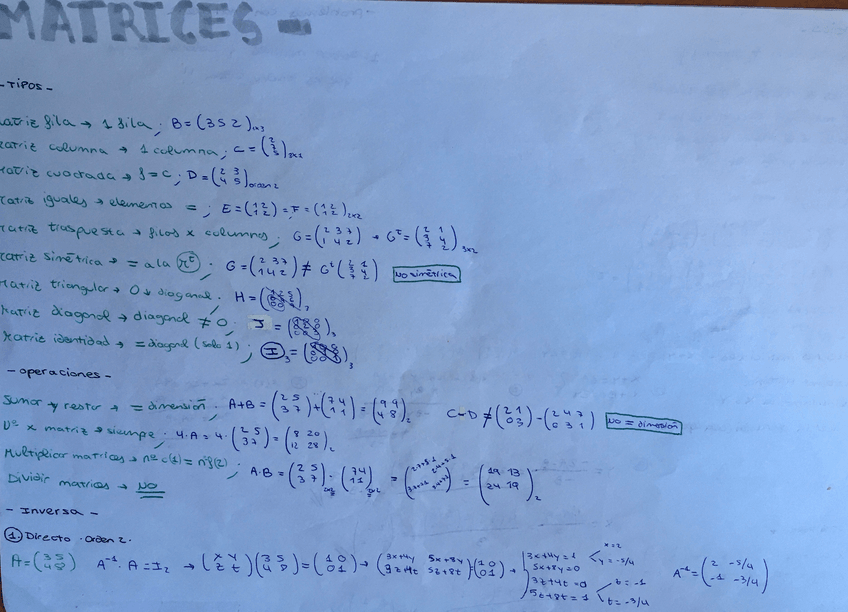 MATRICES-
-TIPOS-
atriz fila → 1 fila; B=(3 5 2)1x3
atriz columna → 1 columna; C=
atriz cuadrada → f=c; D=(2 3 / 4 5)orden 2
atriz iguales → elementos =; E=(1 2 / 1 2)=F=(1 2 / 1 2)2x2
atriz traspuesta → filas x columnas; G=(2 3 7 / 1 4 2) → Gᵗ=(2 1 / 3 4 / 7 2)3x2
atriz simétrica → = a la; G=(2 3 7 / 1 4 2) ≠ Gᵗ(2 1 / 3 4 / 7 2) No simétrica
Matriz triangular → 0 ↓ diagonal. H=
Matriz diagonal → diagonal ≠ 0; J=
Matriz identidad → = diagonal (solo 1); I₃=
-operaciones-
Sumar y restar → = dimensión; A+B=(2 5 / 3 7)+(7 4 / 1 1)=(9 9 / 4 8)2 C-D≠(2 1 / 0 3)-(2 4 7 / 0 3 1) No = dimensión
Nº x matriz → siempre; 4·A=4·(2 5 / 3 7)=(8 20 / 12 28)2
Multiplicar matrices → nº c(1)=nºf(2); A·B=(2 5 / 3 7)·(7 4 / 1 1)= =(19 13 / 24 19)2
Dividir matrices → NO
-Inversa-
① Directo ·Orden 2·
A=(3 5 / 4 8) A⁻¹·A=I₂ → (x y / z t)(3 5 / 4 8)=(1 0 / 0 1) → (3x+4y 5x+8y / 3z+4t 5z+8t)=(1 0 / 0 1) → 3x+4y=1 / 5x+8y=0 / 3z+4t=0 / 5z+8t=1 x=2 y=-5/4 t=-3/4 A⁻¹=(2 -5/4 / -1 -3/4)